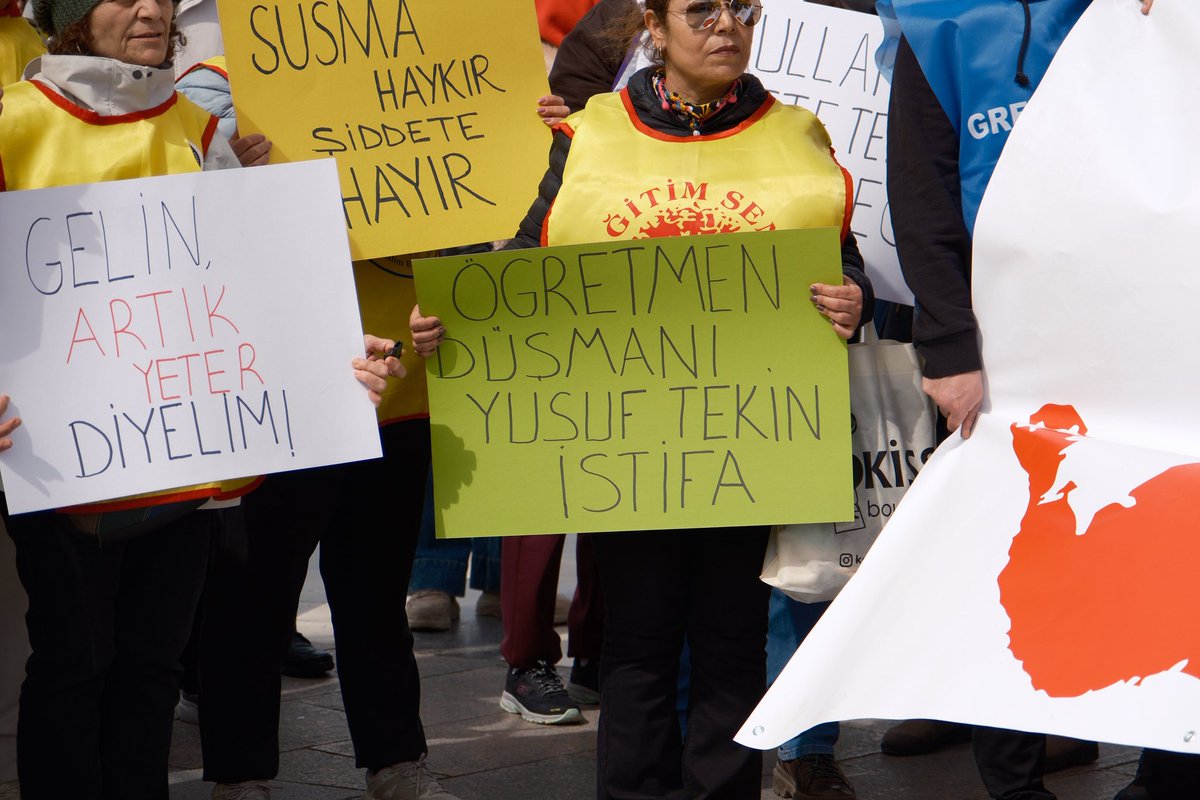 SUSMA
HAYKIR
ŞİDDETE
HAYIR
GELİN,
ARTIK
YETER
DİYELİM!
ĞİTİM SEN
ÖGRETMEN
DÜŞMANI
YUSUF TEKİN
İSTİFA
ULLAR
GRE
OKİSS